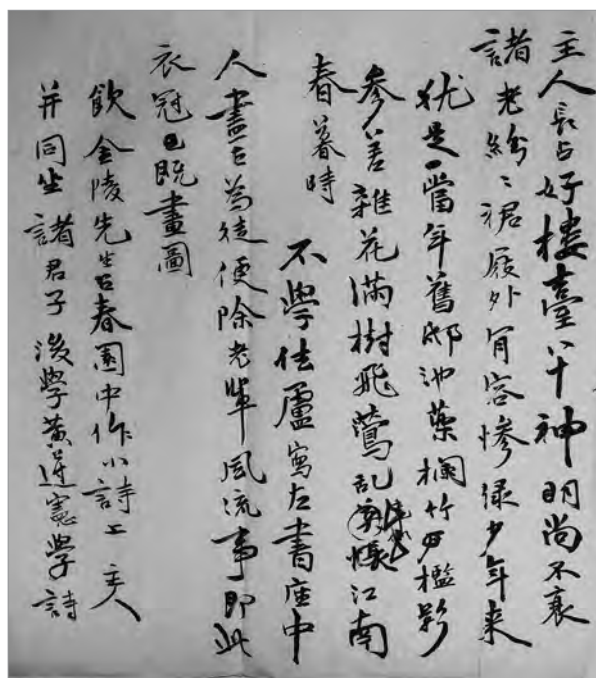 主人長占好樓臺八十神明尚不衰
諸老紛々裙屐外肯容慘綠少年来
猶是當年舊邸池藥欄竹檻影
參差雜花滿樹飛鶯乱江南
春暮時
不學佳廬寫左書座中
人盡古為徒便除老輩風流事即此
衣冠已既畫圖
飲金陵先生古春園中作小詩上主人
并同坐諸君子後學黃遵憲學詩